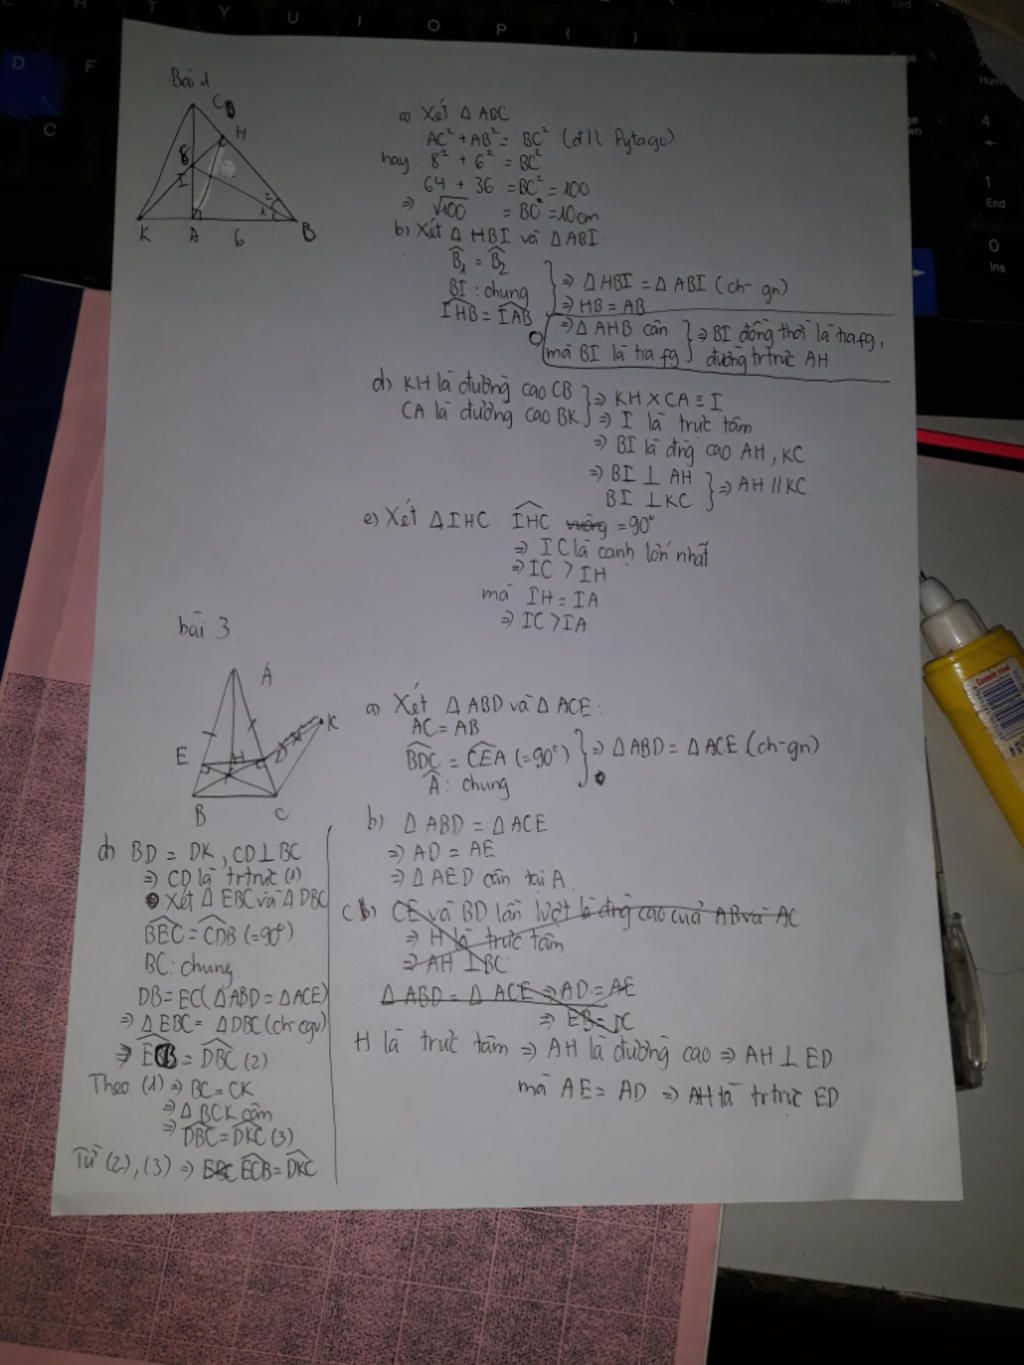 Bài 1.
C
H
8
I
2
1
K A 6 B
a) Xét Δ ABC
AC² + AB² = BC² (đ/l Pytago)
hay: 8² + 6² = BC²
64 + 36 = BC² = 100
⇒ √100 = BC = 10cm
b) Xét Δ HBI và Δ ABI:
B̂₁ = B̂₂
BI : chung
IHB = IAB
⇒ Δ HBI = Δ ABI (ch-gn)
⇒ HB = AB
⇒ Δ AHB cân
mà BI là tia fg
⇒ BI đồng thời là tia fg,
đường trtrực AH
d) KH là đường cao CB
CA là đường cao BK
⇒ KH X CA ≡ I
⇒ I là trực tâm
⇒ BI là đng cao AH, KC
⇒ BI ⊥ AH
BI ⊥ KC
⇒ AH // KC
e) Xét Δ IHC IHC vuông = 90°
⇒ IC là cạnh lớn nhất
⇒ IC > IH
mà IH = IA
⇒ IC > IA
bài 3.
A
K
E H D
B C
a) Xét Δ ABD và Δ ACE:
AC = AB
BDC = CEA (=90°)
Â: chung
⇒ Δ ABD = Δ ACE (ch-gn)
b) Δ ABD = Δ ACE
⇒ AD = AE
⇒ Δ AED cân tại A
c b) CE và BD lần lượt là đng cao của AB và AC
⇒ H là trực tâm
⇒ AH ⊥ BC
Δ ABD = Δ ACE ⇒ AD = AE
⇒ EB = DC
H là trực tâm ⇒ AH là đường cao ⇒ AH ⊥ ED
mà AE = AD ⇒ AH là trtrực ED
d) BD = DK, CD ⊥ BC
⇒ CD là trtrực (1)
Xét Δ EBC và Δ DBC
BEC = CDB (=90°)
BC: chung
DB = EC (Δ ABD = Δ ACE)
⇒ Δ EBC = Δ DBC (ch-cgv)
⇒ ECB = DBC (2)
Theo (1) ⇒ BC = CK
⇒ Δ BCK cân
⇒ DBC = DKC (3)
Từ (2), (3) ⇒ EBC ECB = DKC